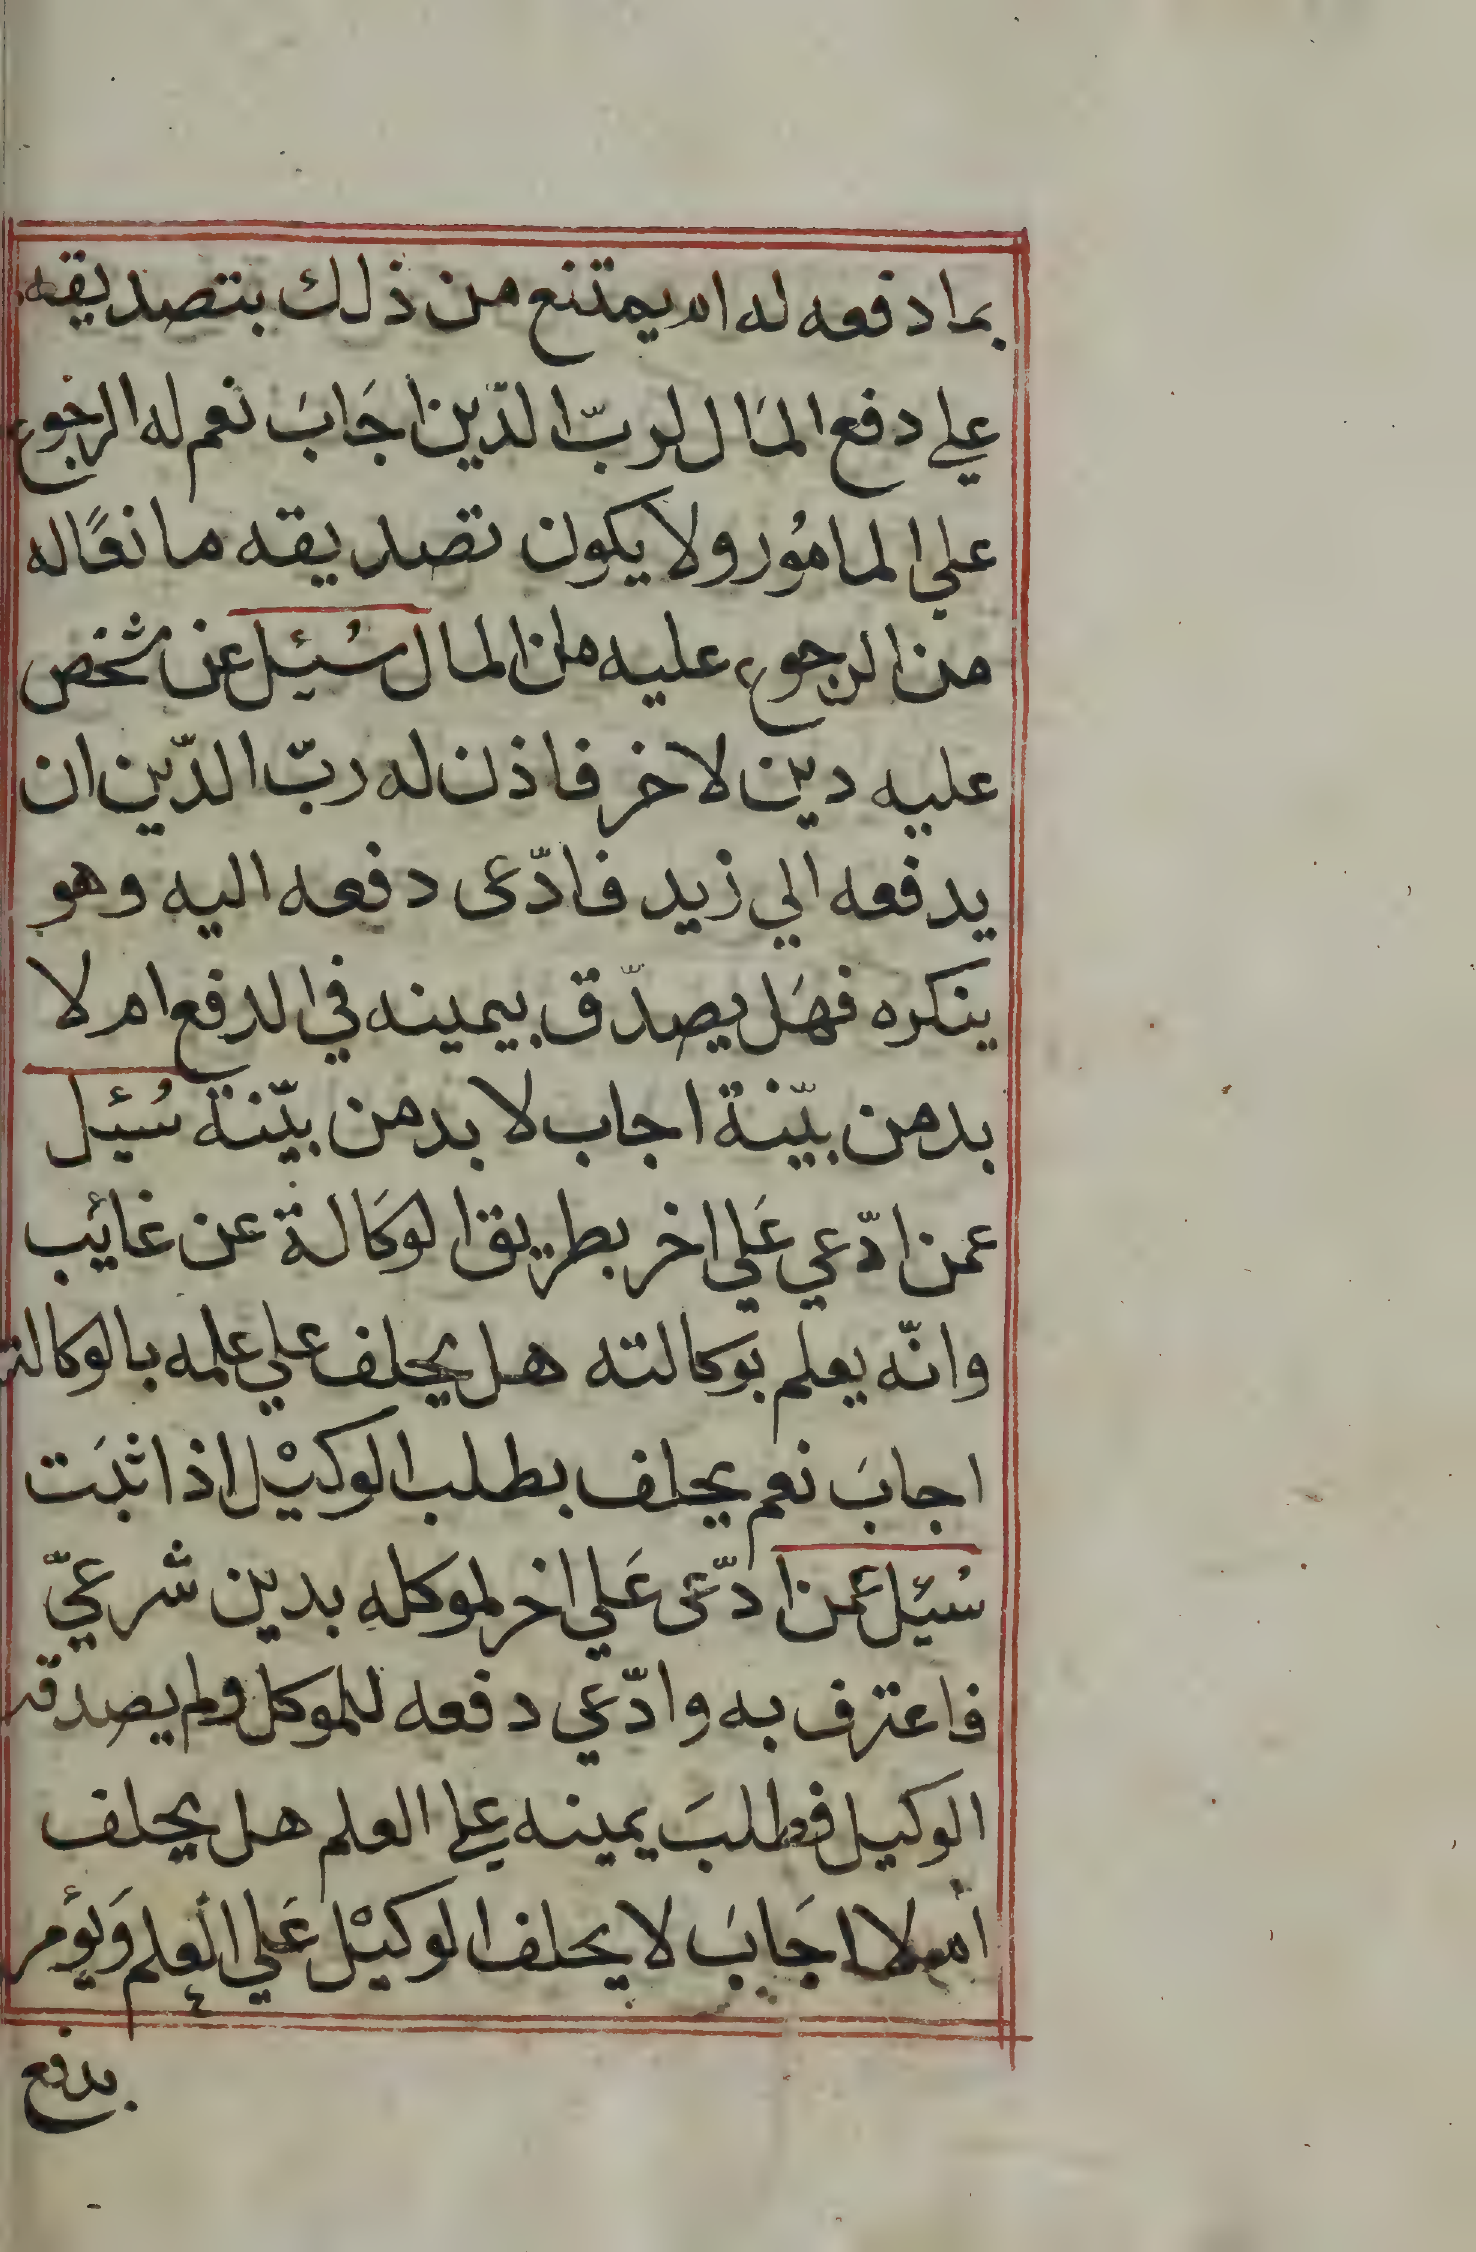 بما دفعه له ام يمتنع من ذلك بتصديقه
علي دفع المَال لربّ الدّين اجَابَ نعم له الرجوع
علي المامُور ولا يكون تصديقه مانعًا له
من الرجوع عليه من المال سُئِل عن شخص
عليه دين لاخر فاذن له ربّ الدّين ان
يدفعه الي زيد فادّعى دفعه اليه وهو
ينكره فهَل يصدّق بيمينه في الدفع ام لا
بد من بيّنة اجاب لا بد من بيّنة سُئِل
عمن ادّعي عَلي اخر بطريق الوكَالة عن غائب
وانّه يعلم بوكالته هل يحلف علي علمه بالوكالة
اجابَ نعم يحلف بطلب الوكيْل اذا ثبَت
سُئِل عمن ادّعى عَلي اخر لموكله بدين شرعيّ
فاعترف به وادّعي دفعه للموكل ولم يصدقه
الوكيل فطلبَ يمينه علي العلم هل يحلف
أم لا اجَابَ لا يحلف الوكيْل عَلي العلم وَيؤمر
بدفع